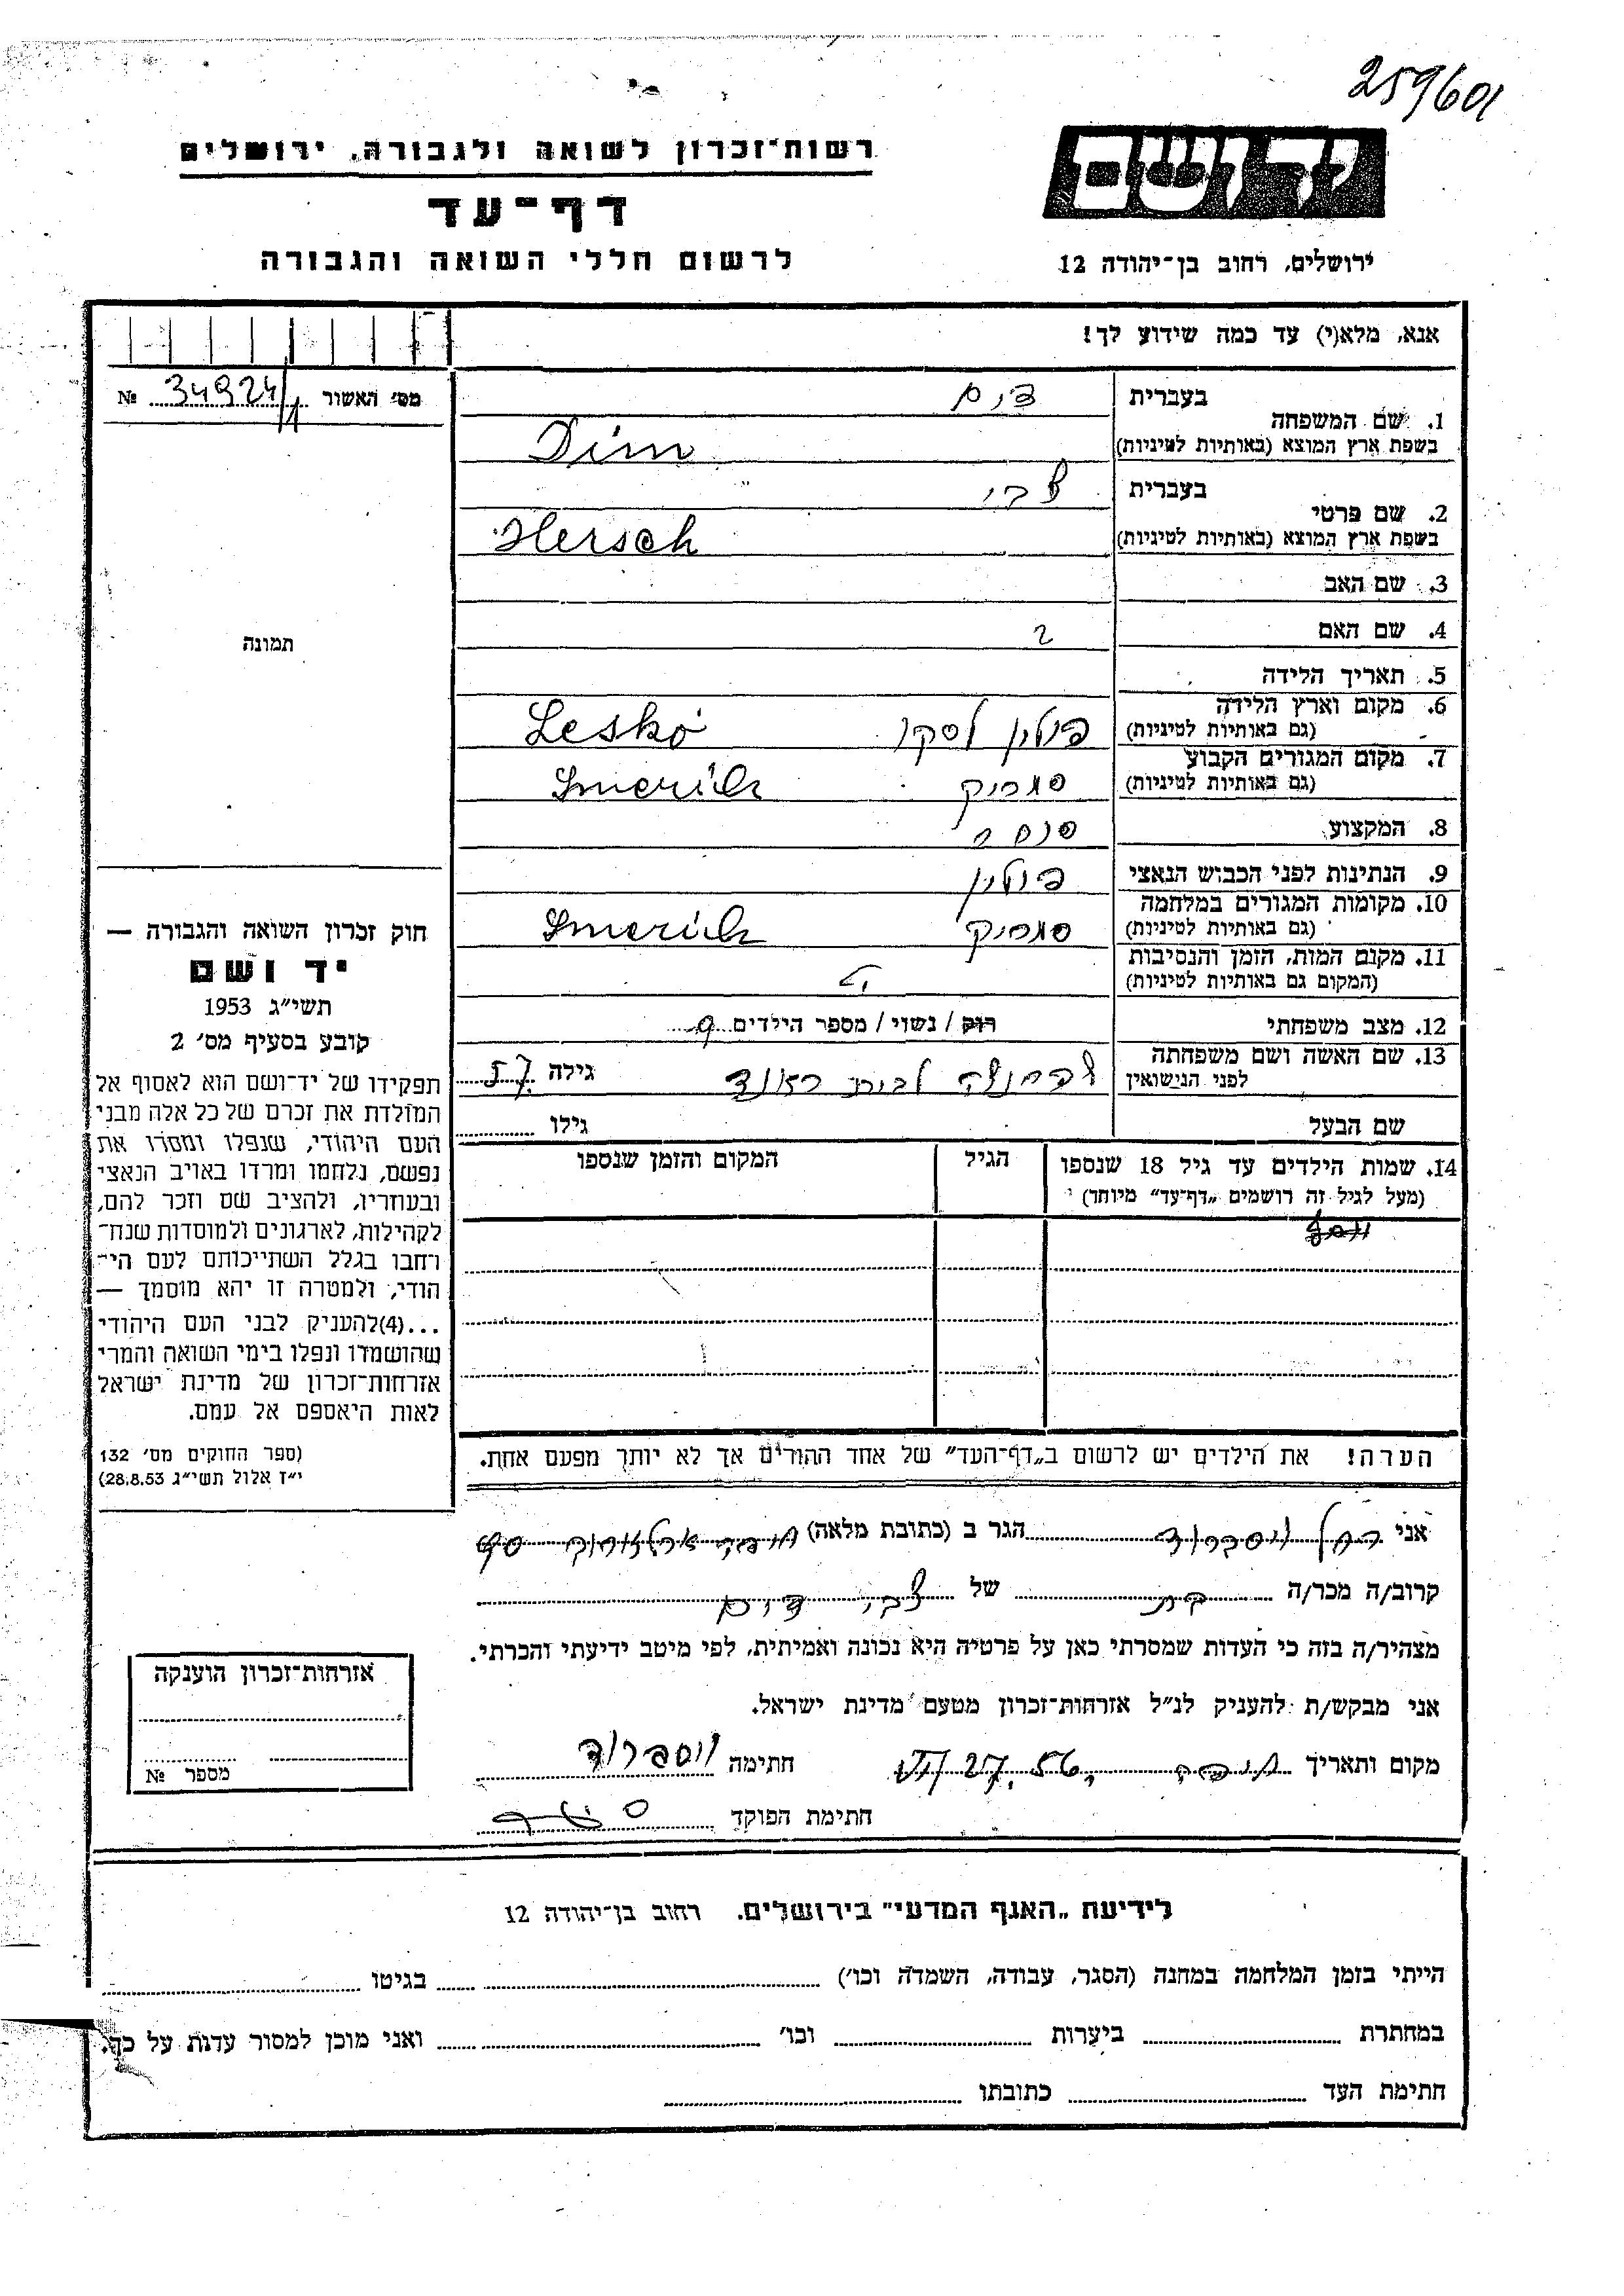 259601
רשות־זכרון לשואה ולגבורה, ירושלים
יד ושם
דף־עד
לרשום חללי השואה והגבורה
ירושלים, רחוב בן־יהודה 12
אנא, מלא(י) עד כמה שידוע לך!
מס' האשור 34924/1 №
1. שם המשפחה
בעברית דים
בשפת ארץ המוצא (באותיות לטיניות) Dim
2. שם פרטי
בעברית צבי
בשפת ארץ המוצא (באותיות לטיניות) Hersch
3. שם האב
4. שם האם
תמונה
5. תאריך הלידה
6. מקום וארץ הלידה
(גם באותיות לטיניות) פולין לסקו Lesko
7. מקום המגורים הקבוע
(גם באותיות לטיניות)
8. המקצוע סוחר
9. הנתינות לפני הכבוש הנאצי פולין
10. מקומות המגורים במלחמה
(גם באותיות לטיניות)
11. מקום המות, הזמן והנסיבות
(המקום גם באותיות לטיניות)
12. מצב משפחתי רוק / נשוי / מספר הילדים 9
13. שם האשה ושם משפחתה
לפני הנישואין לבית גילה 57
שם הבעל גילו
14. שמות הילדים עד גיל 18 שנספו
(מעל לגיל זה רושמים „דף־עד" מיוחד)
הגיל
המקום והזמן שנספו
הערה! את הילדים יש לרשום ב„דף־העד" של אחד ההורים אך לא יותר מפעם אחת.
חוק זכרון השואה והגבורה —
יד ושם
תשי"ג 1953
קובע בסעיף מס' 2
תפקידו של יד־ושם הוא לאסוף אל
המולדת את זכרם של כל אלה מבני
העם היהודי, שנפלו ומסרו את
נפשם, נלחמו ומרדו באויב הנאצי
ובעוזריו, ולהציב שם וזכר להם,
לקהילות, לארגונים ולמוסדות שנח־
רחבו בגלל השתייכותם לעם הי־
הודי, ולמטרה זו יהא מוסמך —
...(4)להעניק לבני העם היהודי
שהושמדו ונפלו בימי השואה והמרי
אזרחות־זכרון של מדינת ישראל
לאות היאספם אל עמם.
(ספר החוקים מס' 132
י"ז אלול תשי"ג 28.8.53)
אני רחל ויסברוד הגר ב (כתובת מלאה)
קרוב/ה מכר/ה בת של צבי דים
מצהיר/ה בזה כי העדות שמסרתי כאן על פרטיה היא נכונה ואמיתית, לפי מיטב ידיעתי והכרתי.
אני מבקש/ת להעניק לנ"ל אזרחות־זכרון מטעם מדינת ישראל.
מקום ותאריך חיפה חתימה ויסברוד
חתימת הפוקד
אזרחות־זכרון הוענקה
מספר №
לידיעת „האגף המדעי" בירושלים. רחוב בן־יהודה 12
הייתי בזמן המלחמה במחנה (הסגר, עבודה, השמדה וכו') בגיטו
במחתרת ביערות וכו' ואני מוכן למסור עדות על כך.
חתימת העד כתובתו